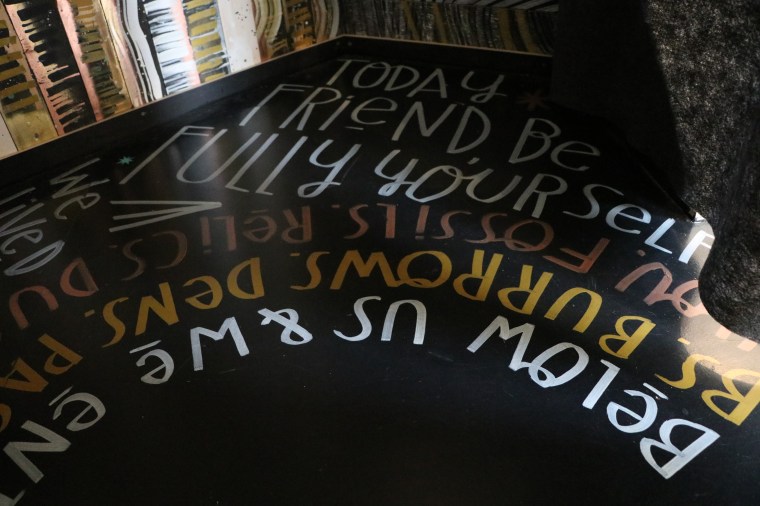 TODAY
FRIEND, BE
FULLY YOURSELF
WE
LIVED
FOSSILS. RELICS.
BURROWS. DENS.
BELOW US & WE